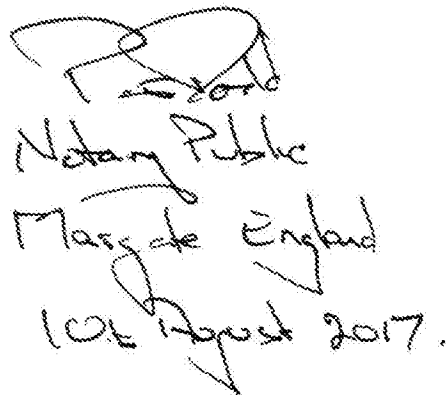 Notary Public
Margate England
10th August 2017.